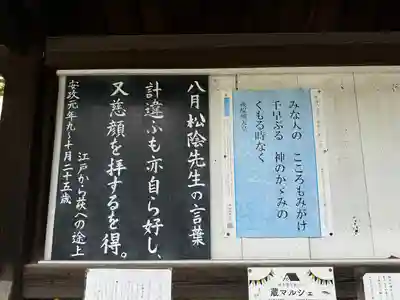 八月 松陰先生の言葉
計違ふも亦自ら好し、
又慈顔を拝するを得。
安政元年九〜十月二十五歳
江戸から萩への途上
みな人の こころもみがけ
千早ぶる 神のかゞみの
くもる時なく
蔵マルシェ